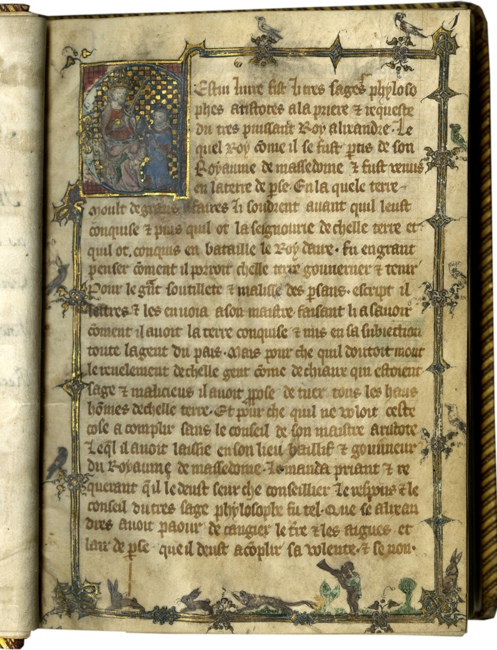 Cestui liure fist li tres sages phyloso
phes aristotes a la priere & requeste
du tres puissant Roy alixandre. Le
quel Roy cõme il se fust ptis de son
Royaume de massedoine & fust venus
en la terre de pse. En la quele terre
moult de grans afaires li sourdrent auant quil leust
conquise & puis quil ot la seignourie de chelle terre et
quil ot conquis en bataille le Roy daire. fu en grant
penser cõment il porroit chelle terre gouuerner & tenir
Pour le grãt soutillete & malisse des psans. escript il
lettres & les enuoia a son maistre faisant li a sauoir
cõment il auoit la terre conquise & mis en sa subiection
toute la gent du pais. Mais pour che quil doutoit mout
le reuelement de chelle gent cõme de chiaux qui estoient
sage & malicieus il auoit ppose de tuer tous les haus
hõmes de chelle terre. Et pour che quil ne voloit ceste
cose a complir sans le conseil de son maistre aristote
Leql il auoit laissie en son lieu baillif & gouuneur
du Royaume de massedoine. Le manda priant & re
querant q̃ il le deust seur che conseillier Le respons & le
conseil du tres sage phylosophe fu tel. Que se alixan
dres auoit paour de cangier le tre & les aigues et
lair de pse. que il deust acõplir sa volente. & se non.